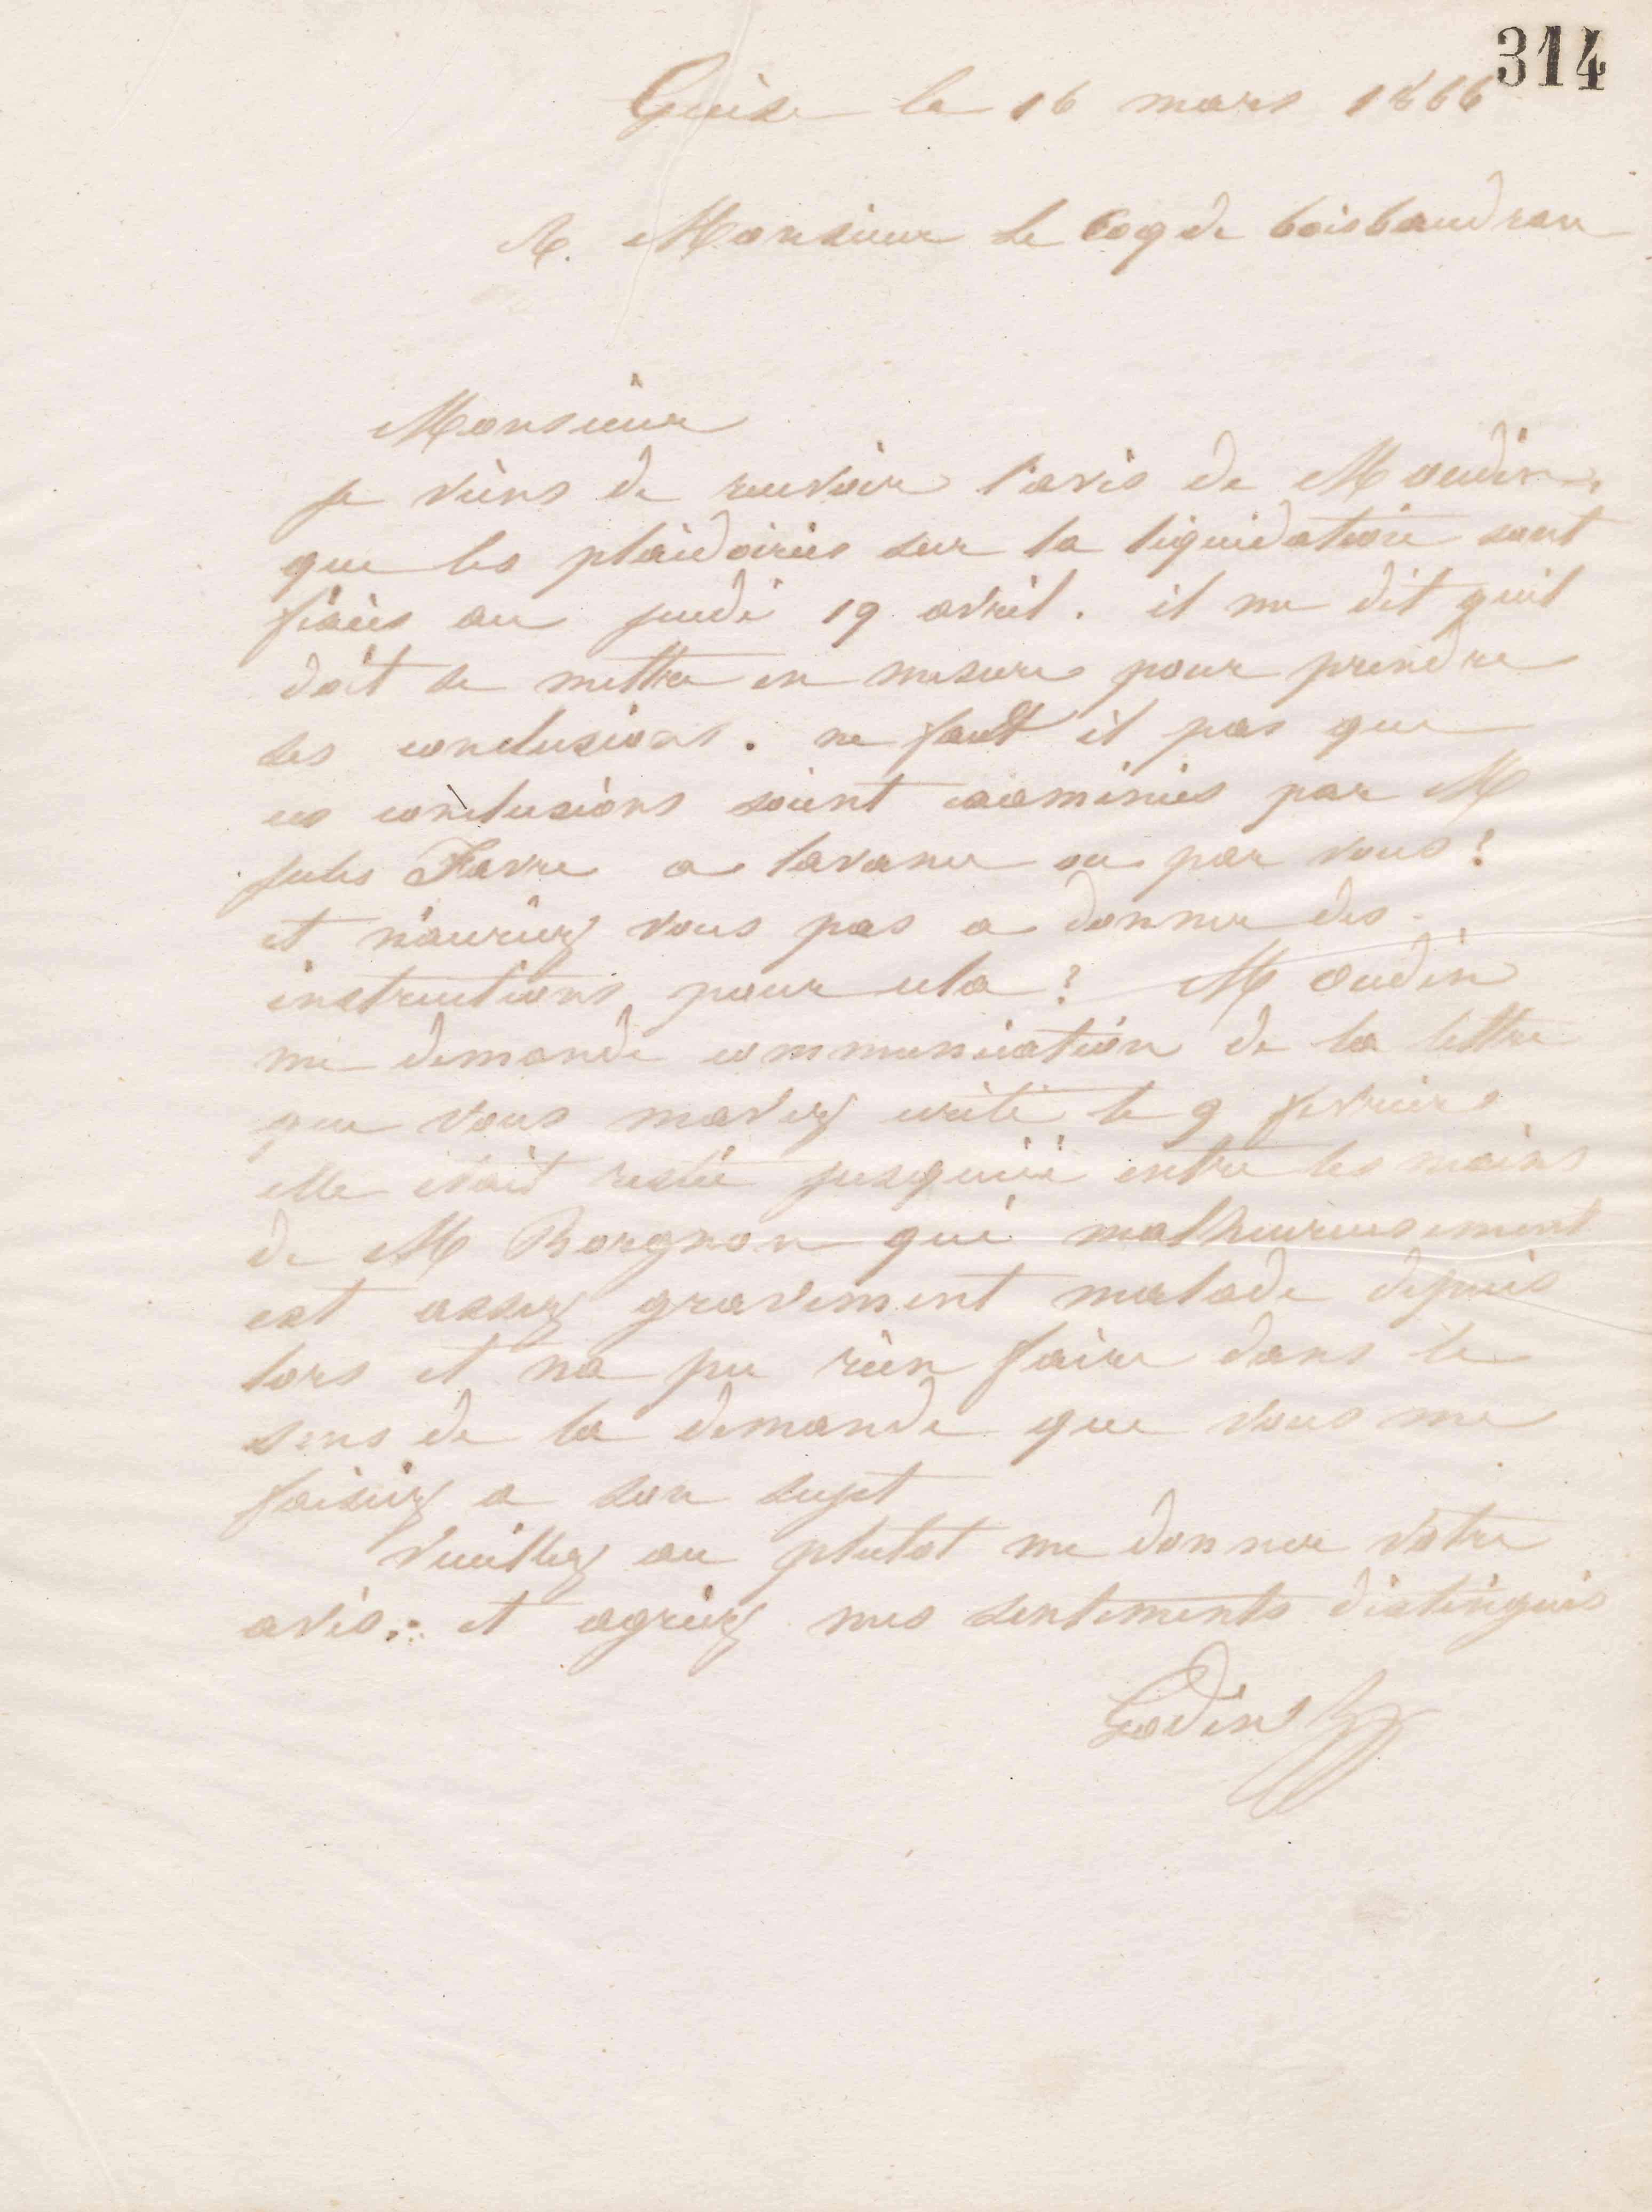 314
Guise le 16 mars 1866
A. Monsieur le Coq de boisbaudran
Monsieur
je viens de recevoir l'avis de M oudin,
que les plaidoiries sur la liquidation sont
fixées au jeudi 19 avril. il me dit quil
doit se mettre en mesure pour prendre
ses conclusions. ne faut il pas que
ces conclusions soient examinées par M
jules Favre a lavance ou par vous?
et n'auriez vous pas a donner des
instructions pour cela? M oudin
me demande communication de la lettre
que vous mavez écrite le 9 fevrier
elle était restée jusquici entre les mains
de M Borgnon qui malheureusement
est assez gravement malade depuis
lors et na pu rien faire dans le
sens de la demande que vous me
faisiez a son sujet
Veuillez au plutot me donner votre
avis. et agréez mes sentiments distingués
Godin